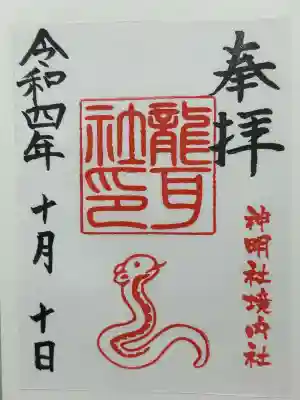 奉拝
神明社境内社
龍耳
社印
令和四年 十月 十日